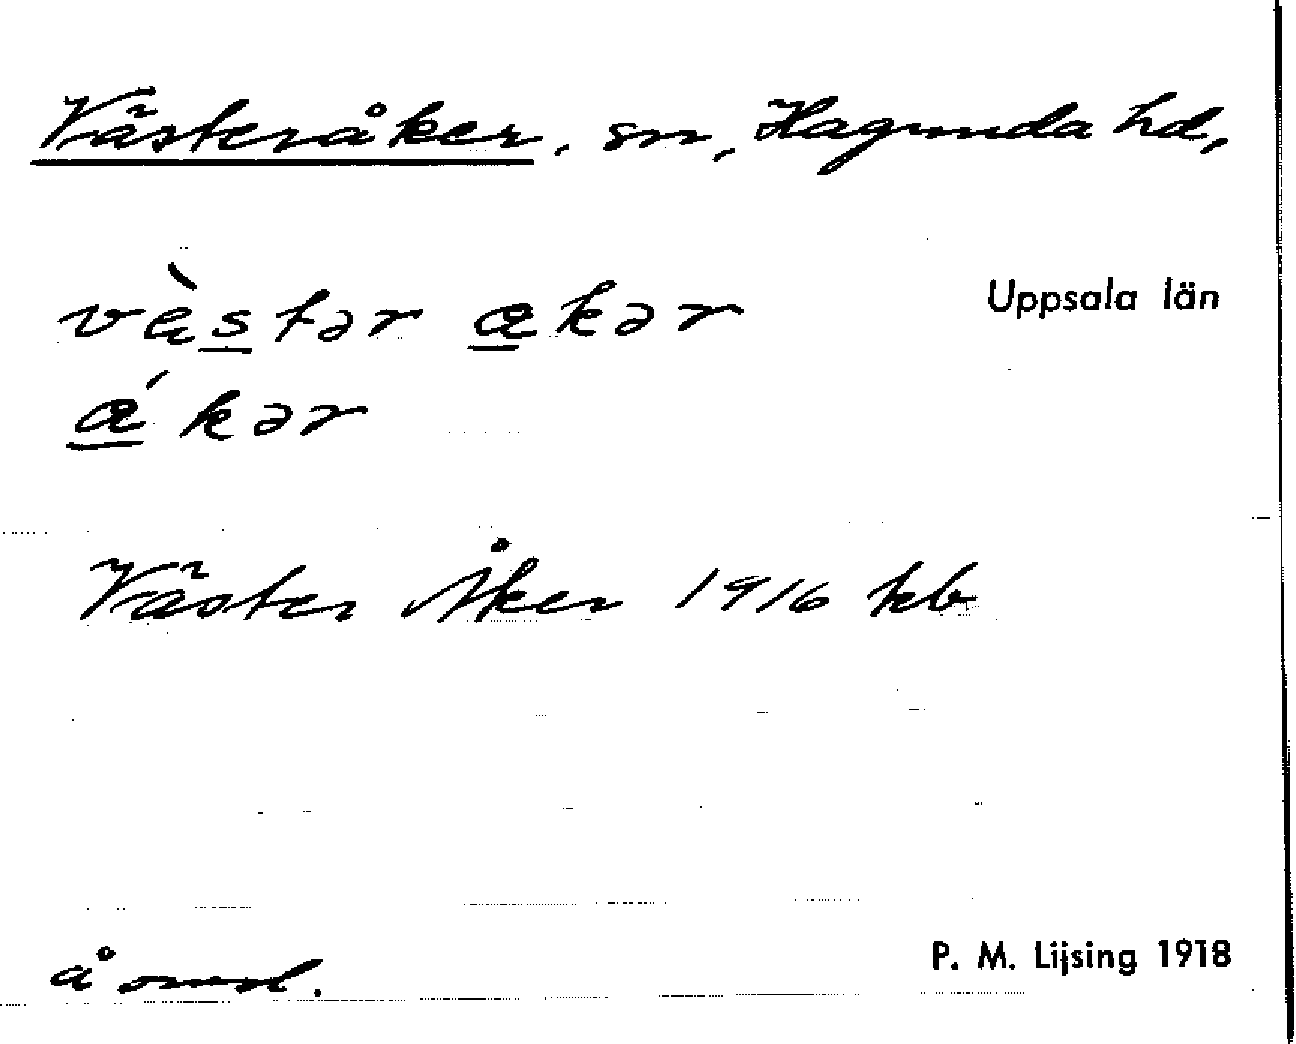 Västeråker, sn, Hagunda hd,
Uppsala län
vὲstər akər
ákər
Väster Åker 1916 kb
å omrd.
P. M. Lijsing 1918